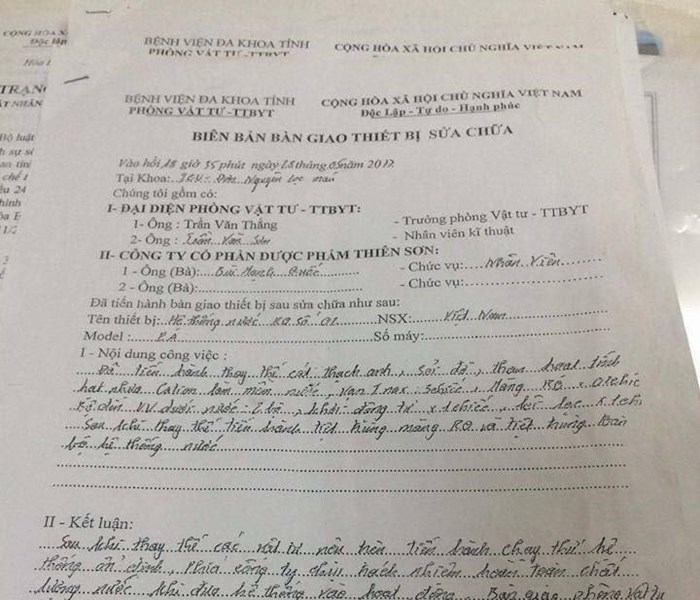 CỘNG HÒA
Độc lập
TRẠNG
ẬT NHÂN
Bộ luật
BỆNH VIỆN ĐA KHOA TỈNH CỘNG HÒA XÃ HỘI CHỦ NGHĨA VIỆT NAM
PHÒNG VẬT TƯ -TTBYT
BỆNH VIỆN ĐA KHOA TỈNH CỘNG HÒA XÃ HỘI CHỦ NGHĨA VIỆT NAM
PHÒNG VẬT TƯ -TTBYT Độc Lập - Tự do - Hạnh phúc
BIÊN BẢN BÀN GIAO THIẾT BỊ SỬA CHỮA
Vào hồi 18 giờ 35 phút ngày 28 tháng 05 năm 2017
Tại Khoa: nguyên lọc máu
Chúng tôi gồm có:
I- ĐẠI DIỆN PHÒNG VẬT TƯ - TTBYT:
1- Ông : Trần Văn Thắng - Trưởng phòng Vật tư - TTBYT
2- Ông : Trần Văn Sơn - Nhân viên kĩ thuật
II- CÔNG TY CỔ PHẦN DƯỢC PHẨM THIÊN SƠN:
1 - Ông (Bà): Bùi Mạnh Quốc - Chức vụ: Nhân Viên
2 - Ông (Bà): - Chức vụ:
Đã tiến hành bàn giao thiết bị sau sửa chữa như sau:
Tên thiết bị: Hệ thống nước RO số 02 NSX: Việt Nam
Model : Số máy:
I - Nội dung công việc :
Đã tiến hành thay thế cát thạch anh, sỏi đỡ, than hoạt tính
hạt nhựa Cation làm mềm nước, van Inox: 5 chiếc, Màng RO x
UV dưới nước: , khởi động từ x 1 chiếc, lõi lọc x
Sau khi thay thế tiến hành tiệt trùng màng RO và tiệt trùng toàn
bộ hệ thống nước
II - Kết luận:
Sau khi thay thế các vật tư nêu trên tiến hành chạy thử hệ
thống ổn định, phía công ty chịu trách nhiệm hoàn toàn chất
lượng nước khi đưa hệ thống vào hoạt động. Bàn giao phòng vật tư